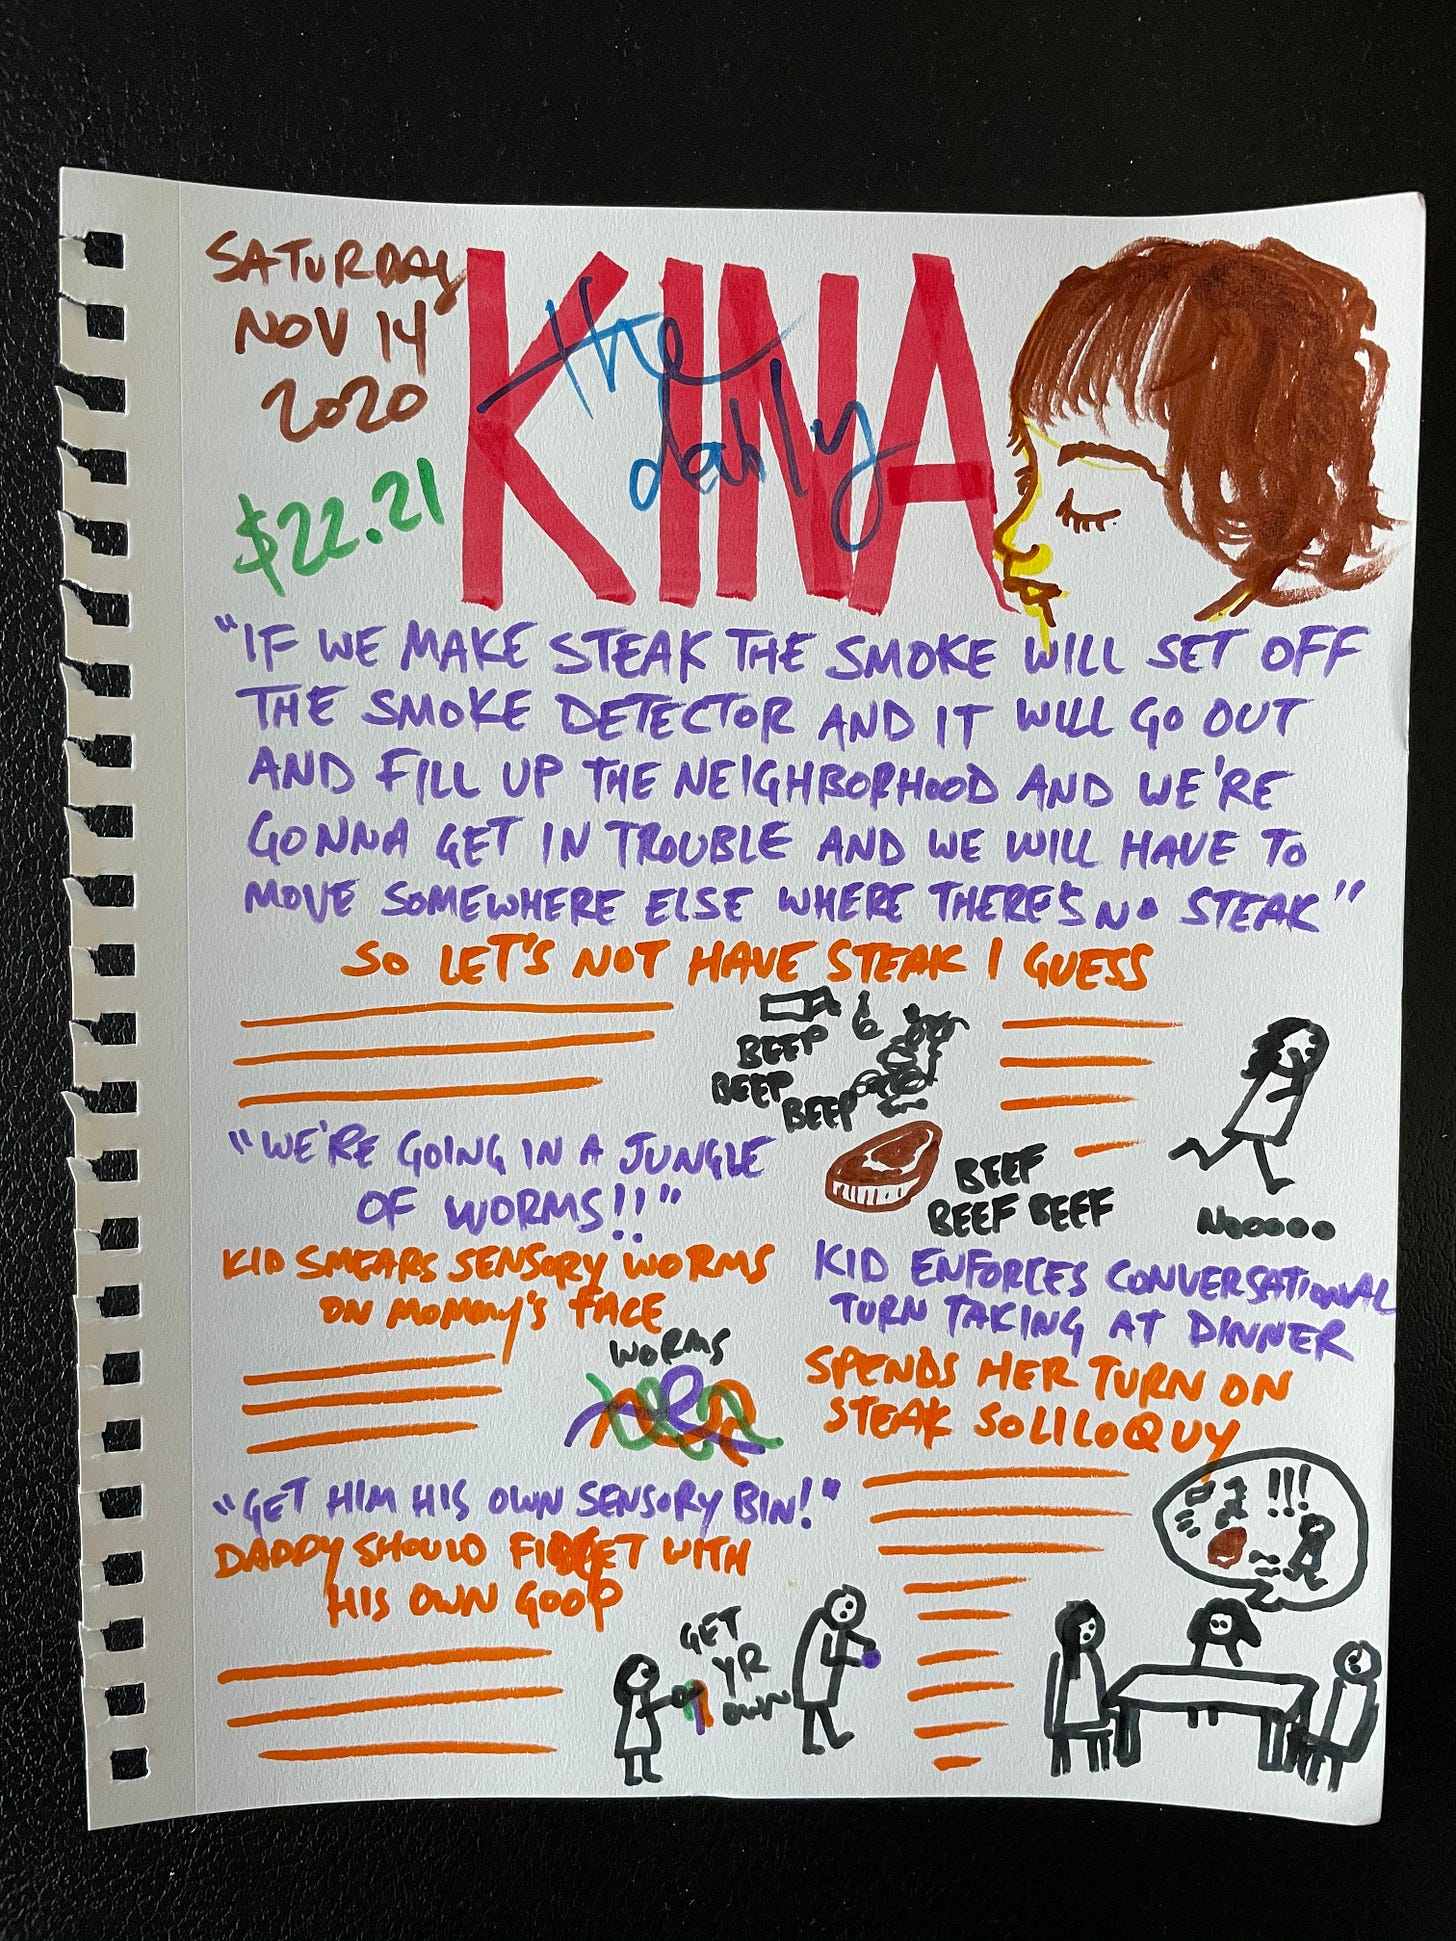 SATURDAY
NOV 14
2020
$22.21
the
daily
KINA
"IF WE MAKE STEAK THE SMOKE WILL SET OFF
THE SMOKE DETECTOR AND IT WILL GO OUT
AND FILL UP THE NEIGHBORHOOD AND WE'RE
GONNA GET IN TROUBLE AND WE WILL HAVE TO
MOVE SOMEWHERE ELSE WHERE THERE'S NO STEAK"
SO LET'S NOT HAVE STEAK I GUESS
BEEP
BEEP
BEEP
BEEF
BEEF BEEF
NOOOOO
"WE'RE GOING IN A JUNGLE
OF WORMS!!"
KID SMEARS SENSORY WORMS
ON MOMMY'S FACE
WORMS
KID ENFORCES CONVERSATIONAL
TURN TAKING AT DINNER
SPENDS HER TURN ON
STEAK SOLILOQUY
!!!
"GET HIM HIS OWN SENSORY BIN!"
DADDY SHOULD FIDGET WITH
HIS OWN GOOP
GET
YR
OWN